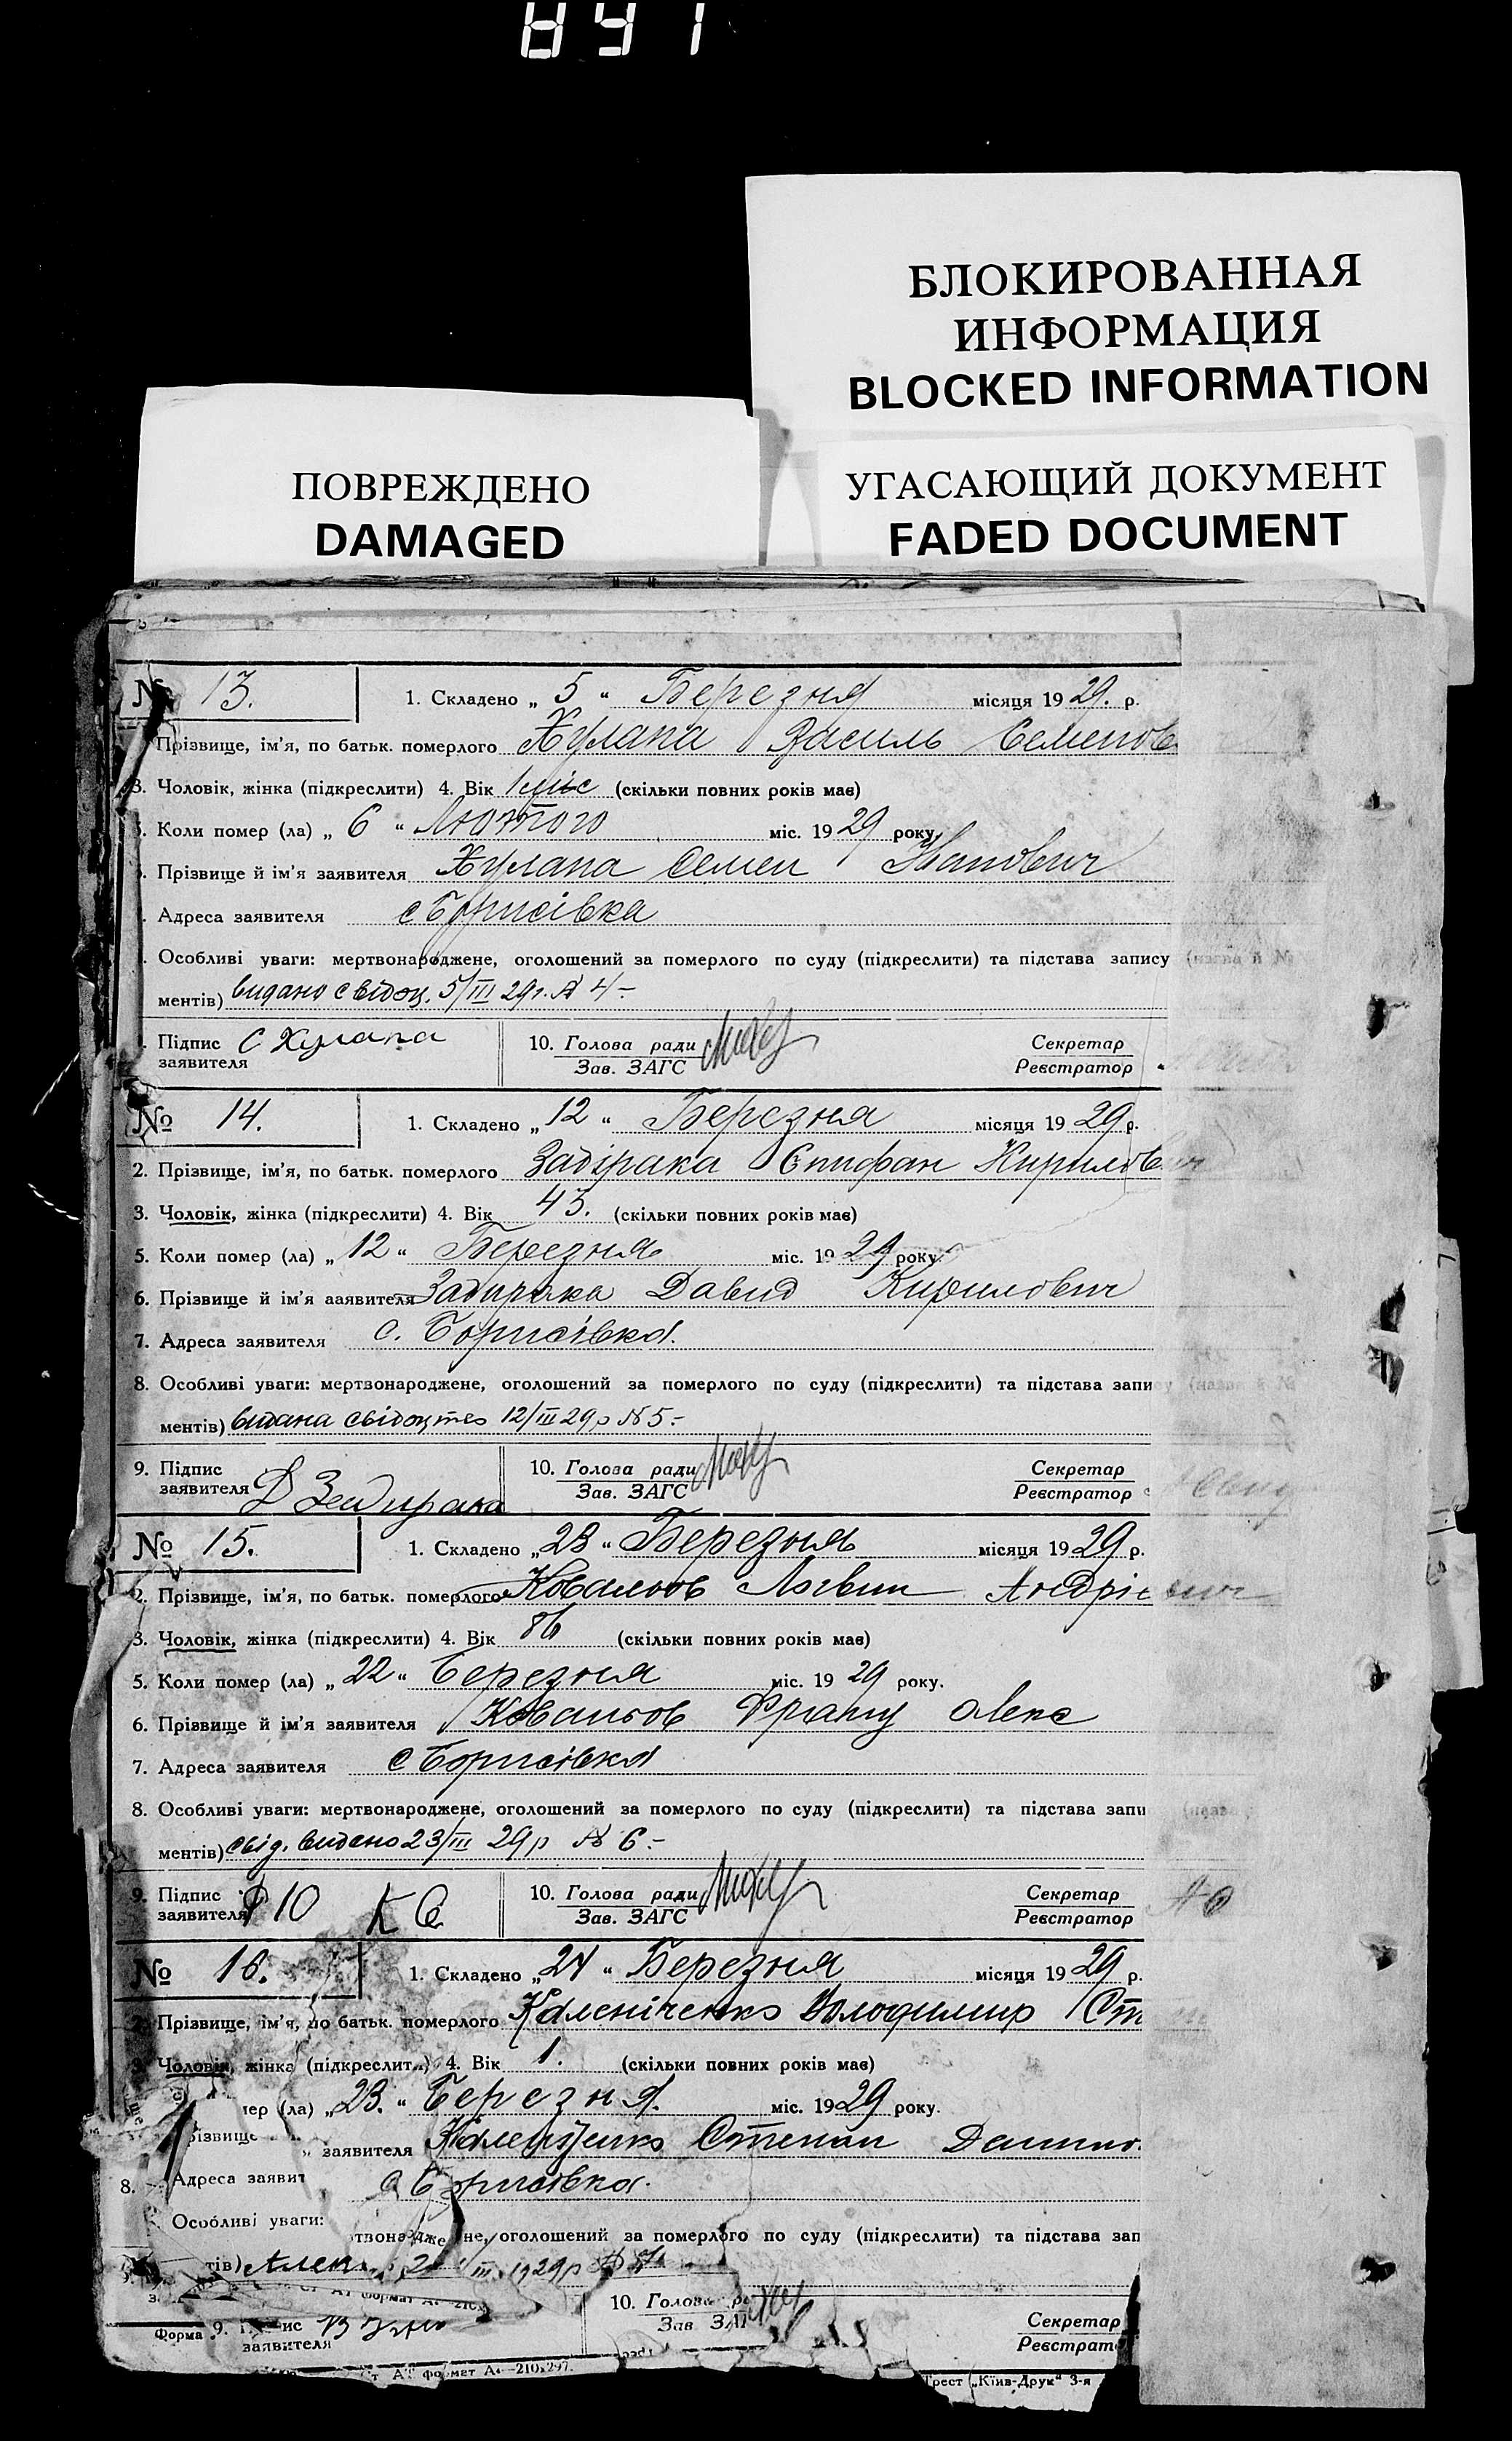 БЛОКИРОВАННАЯ
ИНФОРМАЦИЯ
BLOCKED INFORMATION
ПОВРЕЖДЕНО
DAMAGED
УГАСАЮЩИЙ ДОКУМЕНТ
FADED DOCUMENT
№ 13. 1. Складено „ 5 “ Березня місяця 1929. р.
Прізвище, ім'я, по батьк. померлого Хулапа Василь Семенов
3. Чоловік, жінка (підкреслити) 4. Вік 1 міс (скільки повних років має)
Коли помер (ла) „ 6 “ Лютого міс. 1929 року
Прізвище й ім'я заявителя Хулапа Семен Иванович
Адреса заявителя с Борисівка
Особливі уваги: мертвонароджене, оголошений за померлого по суду (підкреслити) та підстава запису
ментів) видано свідоц. 5/III 29 г. № 4 -
Підпис С Хулапа 10. Голова ради Секретар
заявителя Зав. ЗАГС Реєстратор
№ 14. 1. Складено „ 12 “ Березня місяця 1929 р.
2. Прізвище, ім'я, по батьк. померлого Задірака Епифан Кирилович
3. Чоловік, жінка (підкреслити) 4. Вік 43. (скільки повних років має)
5. Коли помер (ла) „ 12 “ Березня міс. 1929 року
6. Прізвище й ім'я заявителя Задирака Давид Кирилович
7. Адреса заявителя с. Борисівка.
8. Особливі уваги: мертвонароджене, оголошений за померлого по суду (підкреслити) та підстава запису
ментів) видана свідоцтво 12/III 29 р № 5 -
9. Підпис Д Задирака 10. Голова ради Секретар
заявителя Зав. ЗАГС Реєстратор
№ 15. 1. Складено „ 23 “ Березня місяця 1929 р.
2. Прізвище, ім'я, по батьк. померлого Ковальов Логвин Андрієвич
3. Чоловік, жінка (підкреслити) 4. Вік 86 (скільки повних років має)
5. Коли помер (ла) „ 22 “ Березня міс. 1929 року.
6. Прізвище й ім'я заявителя Ковальов Франц Олекс
7. Адреса заявителя с Борисівка
8. Особливі уваги: мертвонароджене, оголошений за померлого по суду (підкреслити) та підстава запи
ментів) свід. видано 23/III 29 р № 6 -
9. Підпис 10. Голова ради Секретар
заявителя Зав. ЗАГС Реєстратор
№ 16. 1. Складено „ 24 “ Березня місяця 1929 р.
Прізвище, ім'я, по батьк. померлого Каленіченко Володимир Ст
Чоловік, жінка (підкреслит..) 4. Вік 1. (скільки повних років має)
мер (ла) „ 23. “ Березня. міс. 1929 року.
різвище заявителя Степан
8. Адреса заявит с Борисівка.
Особливі уваги: твонароджене, оголошений за померлого по суду (підкреслити) та підстава зап
тів) III 1929 р №
10. Голова Секретар
Форма 9. заявителя Зав ЗАГ Реєстрат
формат А4—210x297.
Трест „Київ-Друк“ 3-я